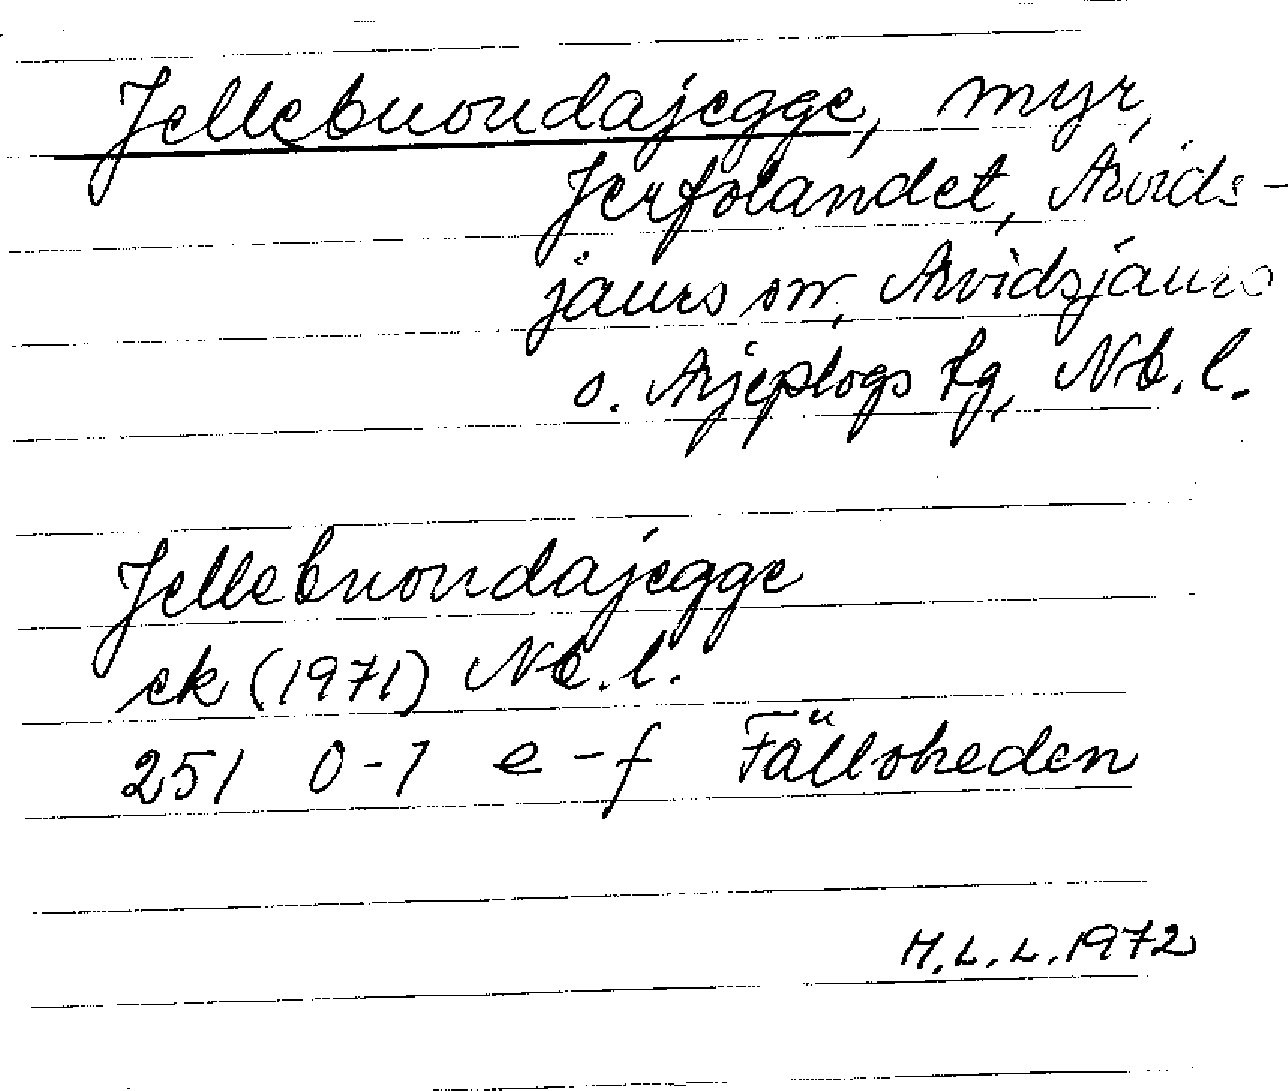 Jellebuoudajegge, myr,
Jerfolandet, Arvids-
jaurs sn, Arvidsjaurs
o. Arjeplogs tg, Nb. l.
Jellebuoudajegge
ek (1971) Nb. l.
25I 0-1 e-f Fälloheden
M.L.L. 1972